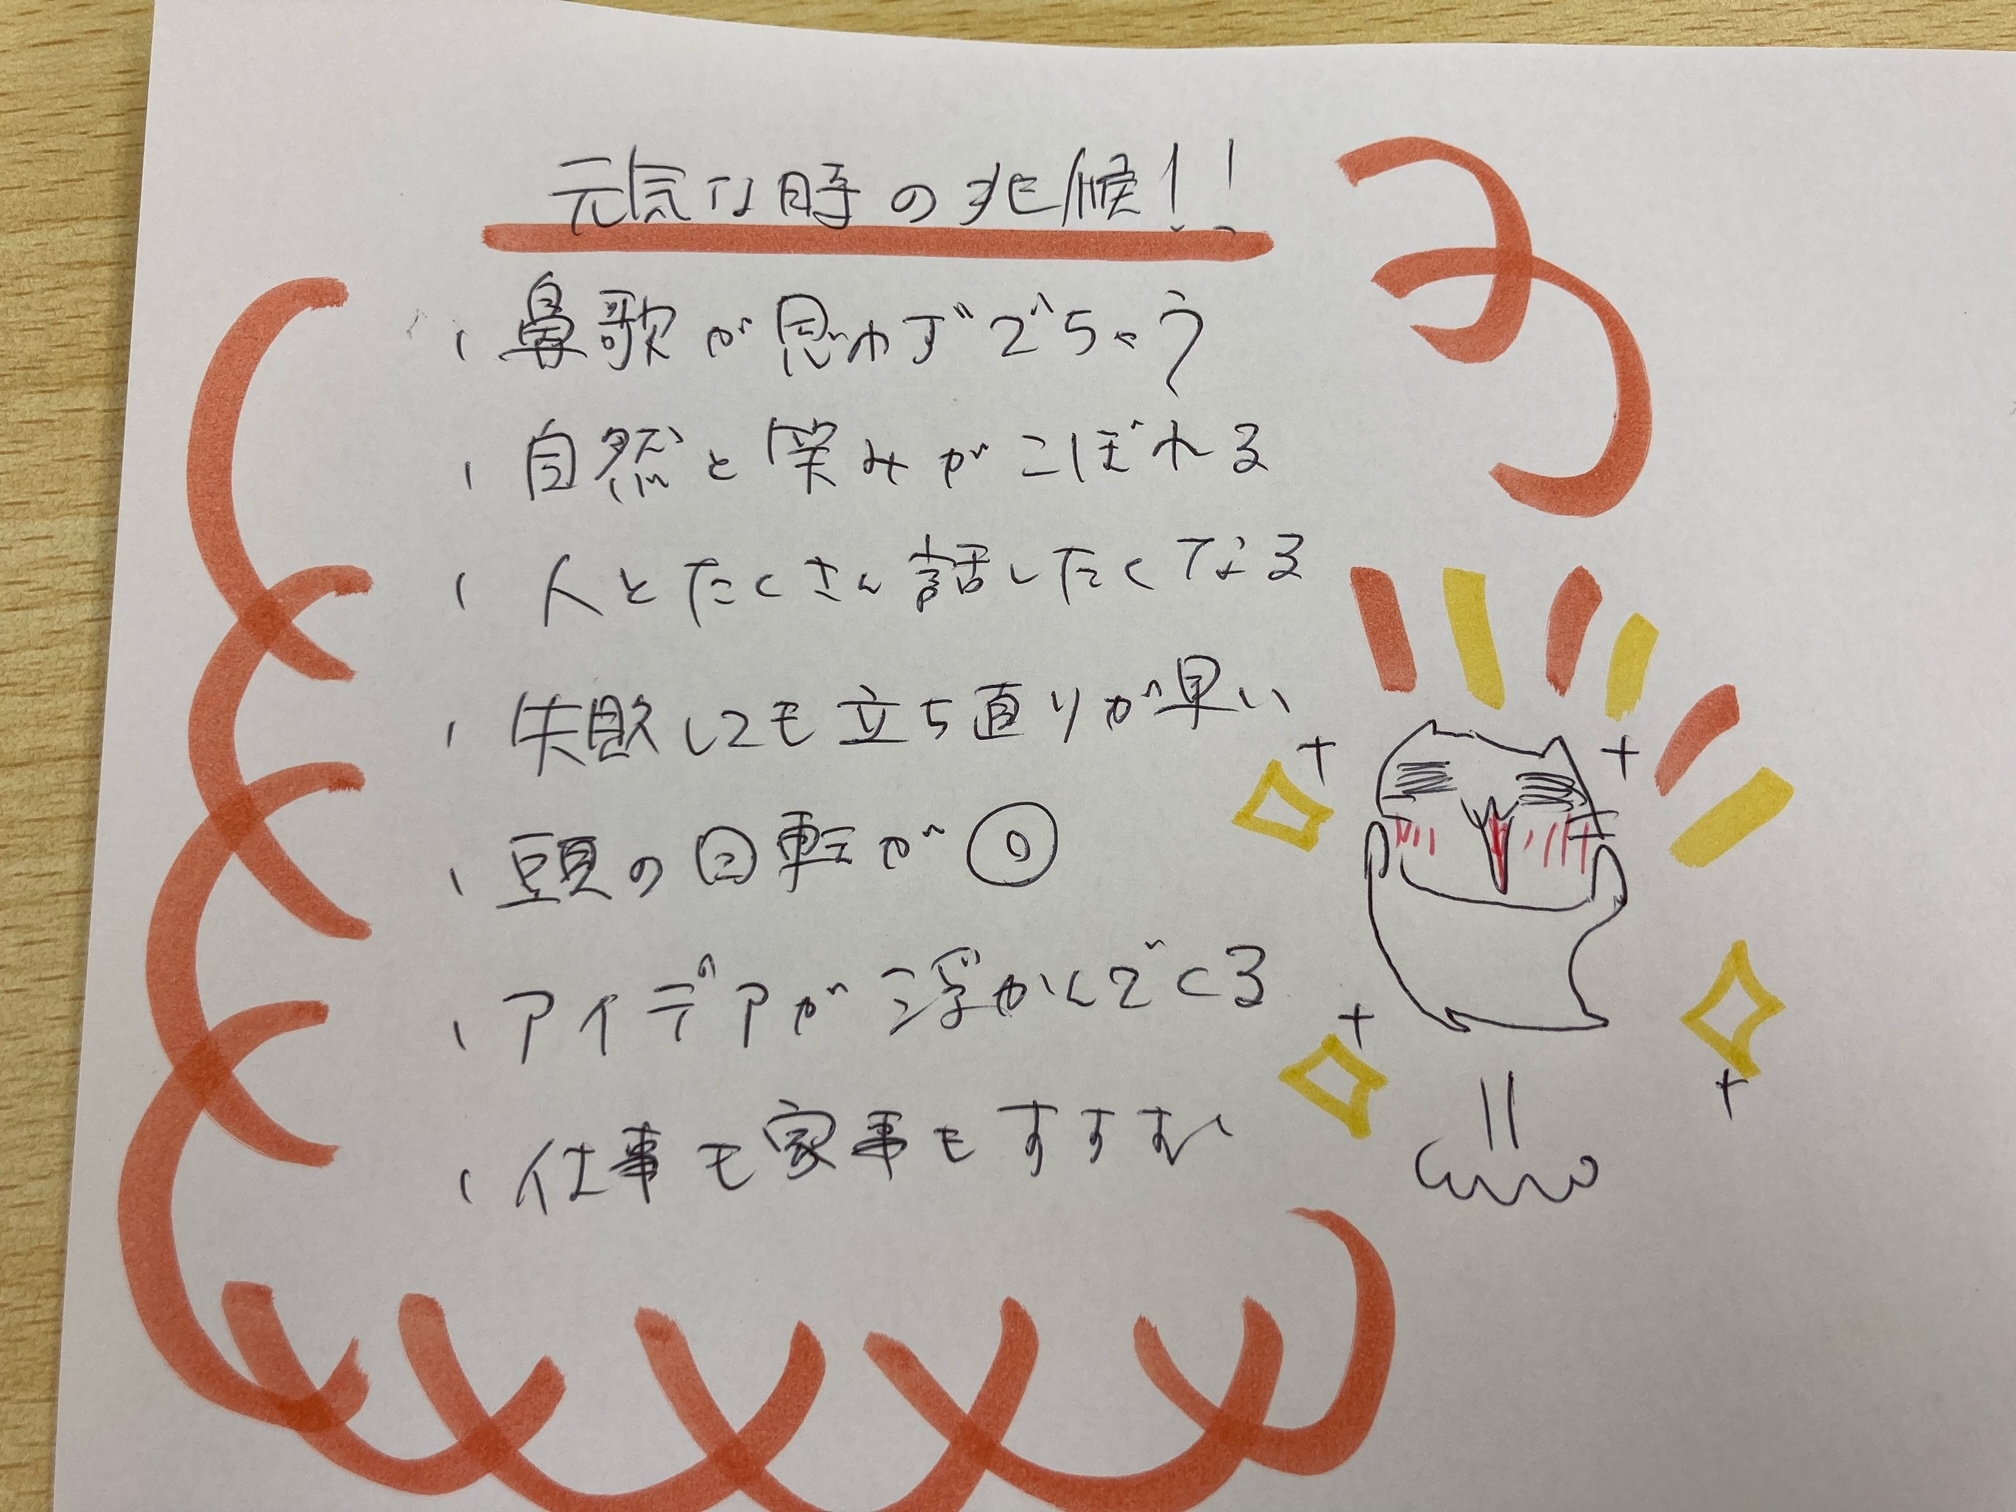 元気な時の兆候!!
・鼻歌が思わずでちゃう
・自然と笑みがこぼれる
・人とたくさん話したくてなる
・失敗しても立ち直りが早い
・頭の回転が◎
・アイデアが浮かんでくる
・仕事も家事もすすむ